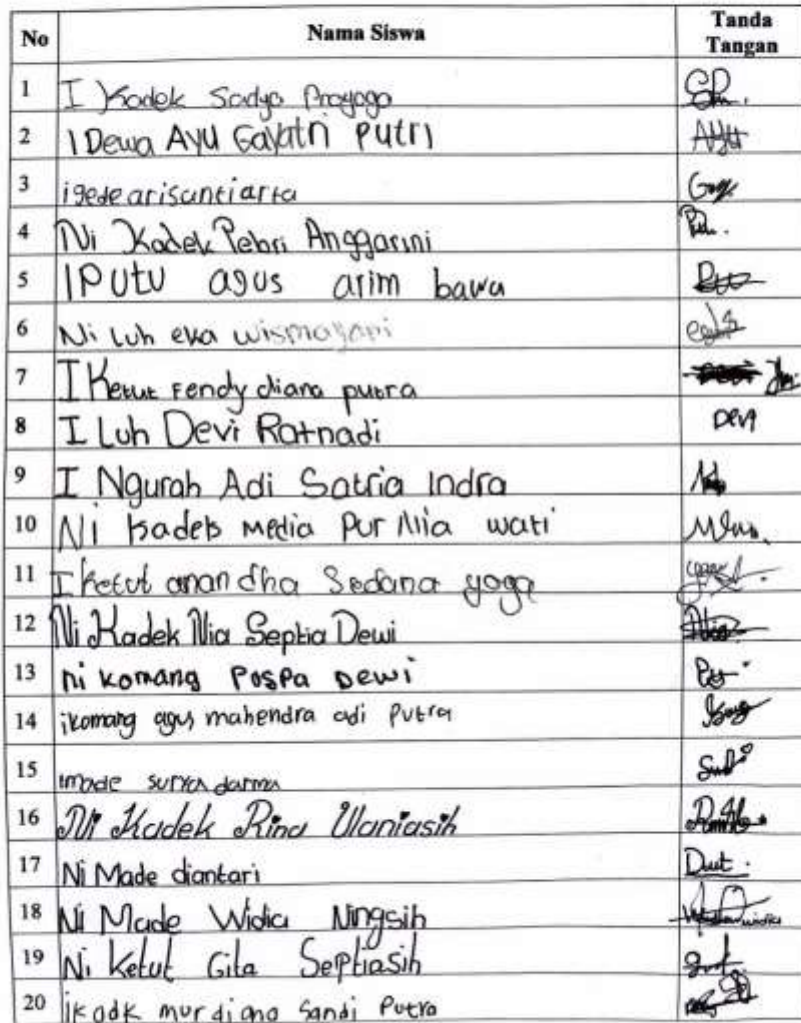 No Nama Siswa Tanda Tangan
1 I Kadek Sadya Prayoga
2 I Dewa Ayu Gayatri Putri Ayu
3 i gede arisantiarta
4 Ni Kadek Pebri Anggarini
5 I PUTU agus arim bawa
6 Ni Luh eka wismayani
7 I Ketut Fendy diana putra
8 I Luh Devi Ratnadi Devi
9 I Ngurah Adi Satria Indra
10 Ni Kadek Media Purnia wati
11 I ketut anandha Sedana yoga
12 Ni Kadek Nia Septia Dewi
13 ni komang Pospa Dewi
14 i komang agus mahendra adi Putra
15 i made surya darma
16 Ni Kadek Rina Ulaniasih
17 Ni Made diantari
18 Ni Made Widia Ningsih
19 Ni Ketut Gita Septiasih
20 i kadk murdiana Sandi Putra